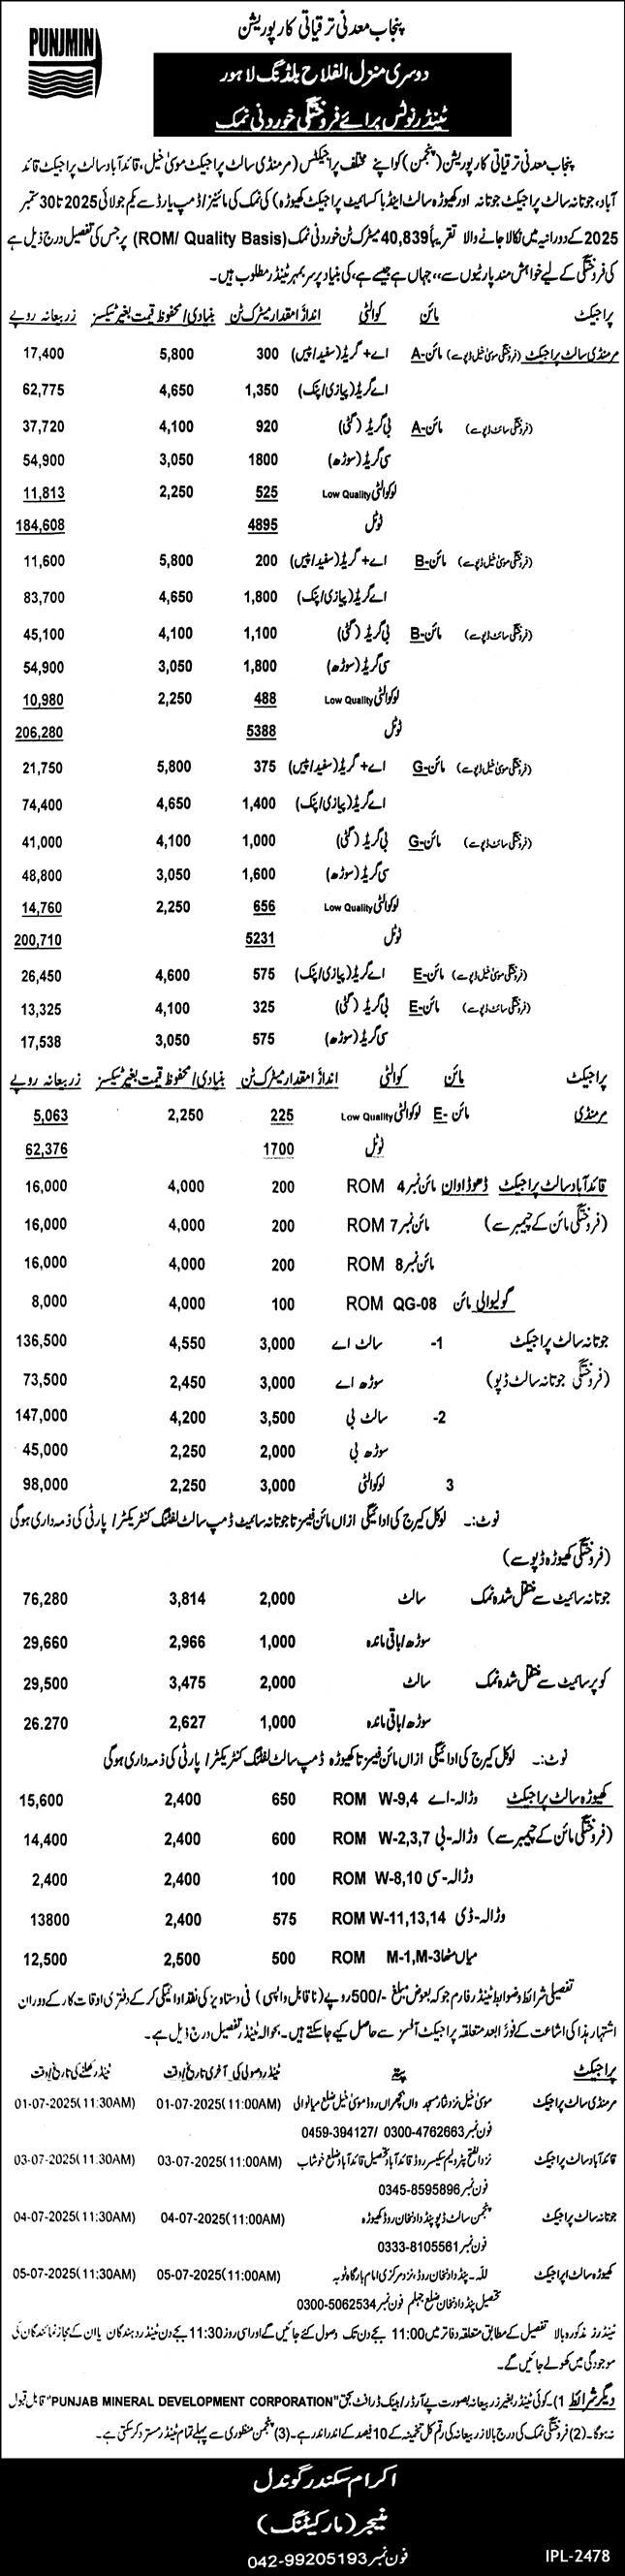 PUNJMIN
پنجاب معدنی ترقیاتی کارپوریشن
دوسری منزل الفلاح بلڈنگ لاہور
ٹینڈر نوٹس برائے فروختگی خوردنی نمک
پنجاب معدنی ترقیاتی کارپوریشن (پنجمن) کو اپنے مختلف پراجیکٹس (مرمنڈی سالٹ پراجیکٹ موسیٰ خیل، قائدآباد سالٹ پراجیکٹ قائد
آباد، جوتانہ سالٹ پراجیکٹ جوتانہ اور کھیوڑہ سالٹ اینڈ باکسائیٹ پراجیکٹ کھیوڑہ) کی نمک کی مائنز/ڈمپ یارڈ سے یکم جولائی 2025 تا 30 ستمبر
2025 کے دورانیہ میں نکالا جانے والا تقریباً 40,839 میٹرک ٹن خوردنی نمک (ROM/ Quality Basis) پر جس کی تفصیل درج ذیل ہے
کی فروختگی کے لیے خواہش مند پارٹیوں سے، جہاں ہے جیسے ہے، کی بنیاد پر سر بمہر ٹینڈر مطلوب ہیں۔
پراجیکٹ مائن کوالٹی اندازاً مقدار میٹرک ٹن بنیادی/محفوظ قیمت بغیر ٹیکسز زر بیعانہ روپے
مرمنڈی سالٹ پراجیکٹ (فروختگی موسیٰ خیل ڈپو سے) مائن-A اے+ گریڈ (سفید/پیس) 300 5,800 17,400
اے گریڈ (پیازی/پنک) 1,350 4,650 62,775
(فروختگی سائٹ ڈپو سے) مائن-A بی گریڈ (گٹی) 920 4,100 37,720
سی گریڈ (سوڑھ) 1800 3,050 54,900
لوکوالٹی Low Quality 525 2,250 11,813
ٹوٹل 4895 184,608
(فروختگی موسیٰ خیل ڈپو سے) مائن-B اے+ گریڈ (سفید/پیس) 200 5,800 11,600
اے گریڈ (پیازی/پنک) 1,800 4,650 83,700
(فروختگی سائٹ ڈپو سے) مائن-B بی گریڈ (گٹی) 1,100 4,100 45,100
سی گریڈ (سوڑھ) 1,800 3,050 54,900
لوکوالٹی Low Quality 488 2,250 10,980
ٹوٹل 5388 206,280
(فروختگی موسیٰ خیل ڈپو سے) مائن-G اے+ گریڈ (سفید/پیس) 375 5,800 21,750
اے گریڈ (پیازی/پنک) 1,400 4,650 74,400
(فروختگی سائٹ ڈپو سے) مائن-G بی گریڈ (گٹی) 1,000 4,100 41,000
سی گریڈ (سوڑھ) 1,600 3,050 48,800
لوکوالٹی Low Quality 656 2,250 14,760
ٹوٹل 5231 200,710
(فروختگی موسیٰ خیل ڈپو سے) مائن-E اے گریڈ (پیازی/پنک) 575 4,600 26,450
(فروختگی سائٹ ڈپو سے) مائن-E بی گریڈ (گٹی) 325 4,100 13,325
سی گریڈ (سوڑھ) 575 3,050 17,538
پراجیکٹ مائن کوالٹی اندازاً مقدار میٹرک ٹن بنیادی/محفوظ قیمت بغیر ٹیکسز زر بیعانہ روپے
مرمنڈی مائن -E لوکوالٹی Low Quality 225 2,250 5,063
ٹوٹل 1700 62,376
قائدآباد سالٹ پراجیکٹ ڈھوڈا وان مائن نمبر 4 ROM 200 4,000 16,000
(فروختگی مائن کے چیمبر سے) مائن نمبر 7 ROM 200 4,000 16,000
مائن نمبر 8 ROM 200 4,000 16,000
گولیوالی مائن ROM QG-08 100 4,000 8,000
جوتانہ سالٹ پراجیکٹ 1- سالٹ اے 3,000 4,550 136,500
(فروختگی جوتانہ سالٹ ڈپو) سوڑھ اے 3,000 2,450 73,500
2- سالٹ بی 3,500 4,200 147,000
سوڑھ بی 2,000 2,250 45,000
3 لوکوالٹی 3,000 2,250 98,000
نوٹ:۔ لوکل کیرج کی ادائیگی ازاں مائن فیسز تا جوتانہ سائیٹ ڈمپ سالٹ لفٹنگ کنٹریکٹر/ پارٹی کی ذمہ داری ہوگی
(فروختگی کھیوڑہ ڈپو سے)
جوتانہ سائیٹ سے منتقل شدہ نمک سالٹ 2,000 3,814 76,280
سوڑھ/باقی ماندہ 1,000 2,966 29,660
کوپر سائیٹ سے منتقل شدہ نمک سالٹ 2,000 3,475 29,500
سوڑھ/باقی ماندہ 1,000 2,627 26.270
نوٹ:۔ لوکل کیرج کی ادائیگی ازاں مائن فیسز تا کھیوڑہ ڈمپ سالٹ لفٹنگ کنٹریکٹر/ پارٹی کی ذمہ داری ہوگی
کھیوڑہ سالٹ پراجیکٹ وڑالہ-اے ROM W-9,4 650 2,400 15,600
(فروختگی مائن کے چیمبر سے) وڑالہ-بی ROM W-2,3,7 600 2,400 14,400
وڑالہ-سی ROM W-8,10 100 2,400 2,400
وڑالہ-ڈی ROM W-11,13,14 575 2,400 13800
میاں مٹھا ROM M-1,M-3 500 2,500 12,500
تفصیلی شرائط و ضوابط ٹینڈر فارم جو کہ بعوض مبلغ -/500 روپے (ناقابل واپسی) فی دستاویز کی نقد ادائیگی کر کے دفتری اوقات کار کے دوران
اشتہار ہذا کی اشاعت کے فوراً بعد متعلقہ پراجیکٹ آفسز سے حاصل کیے جاسکتے ہیں۔ بحوالہ ٹینڈر تفصیل درج ذیل ہے۔
پراجیکٹ پتے ٹینڈر وصولی کی آخری تاریخ/وقت ٹینڈر کھلنے کی تاریخ/وقت
مرمنڈی سالٹ پراجیکٹ موسیٰ خیل نزد نثار مسجد واں بھچراں روڈ موسیٰ خیل ضلع میانوالی 01-07-2025(11:00AM) 01-07-2025(11:30AM)
فون نمبر 0300-4762663 /0459-394127
قائدآباد سالٹ پراجیکٹ نزد الفتح پٹرولیم سکیسر روڈ قائدآباد تحصیل قائدآباد ضلع خوشاب 03-07-2025(11:00AM) 03-07-2025(11:30AM)
فون نمبر 0345-8595896
جوتانہ سالٹ پراجیکٹ پنجمن سالٹ ڈپو پنڈدادنخان روڈ کھیوڑہ 04-07-2025(11:00AM) 04-07-2025(11:30AM)
فون نمبر 0333-8105561
کھیوڑہ سالٹ پراجیکٹ للہ-پنڈدادنخان روڈ، نزد مرکزی امام بارگاہ توبہ 05-07-2025(11:00AM) 05-07-2025(11:30AM)
تحصیل پنڈدادنخان ضلع جہلم فون نمبر 0300-5062534
ٹینڈرز مذکورہ بالا تفصیل کے مطابق متعلقہ دفاتر میں 11:00 بجے دن تک وصول کئے جائیں گے اور اسی روز 11:30 بجے دن ٹینڈر دہندگان یا ان کے مجاز نمائندگان کی
موجودگی میں کھولے جائیں گے۔
دیگر شرائط 1)۔ کوئی ٹینڈر بغیر زر بیعانہ بصورت پے آرڈر/بینک ڈرافٹ بحق "PUNJAB MINERAL DEVELOPMENT CORPORATION" قابل قبول
نہ ہوگا۔ (2) فروختگی نمک کی درج بالا زر بیعانہ کی رقم کل تخمینہ کے 10 فیصد کے اندر اندر ہے۔ (3) پنجمن منظوری سے پہلے تمام ٹینڈر مسترد کر سکتی ہے۔
اکرام سکندر گوندل
منیجر (مارکیٹنگ)
فون نمبر 042-99205193
IPL-2478